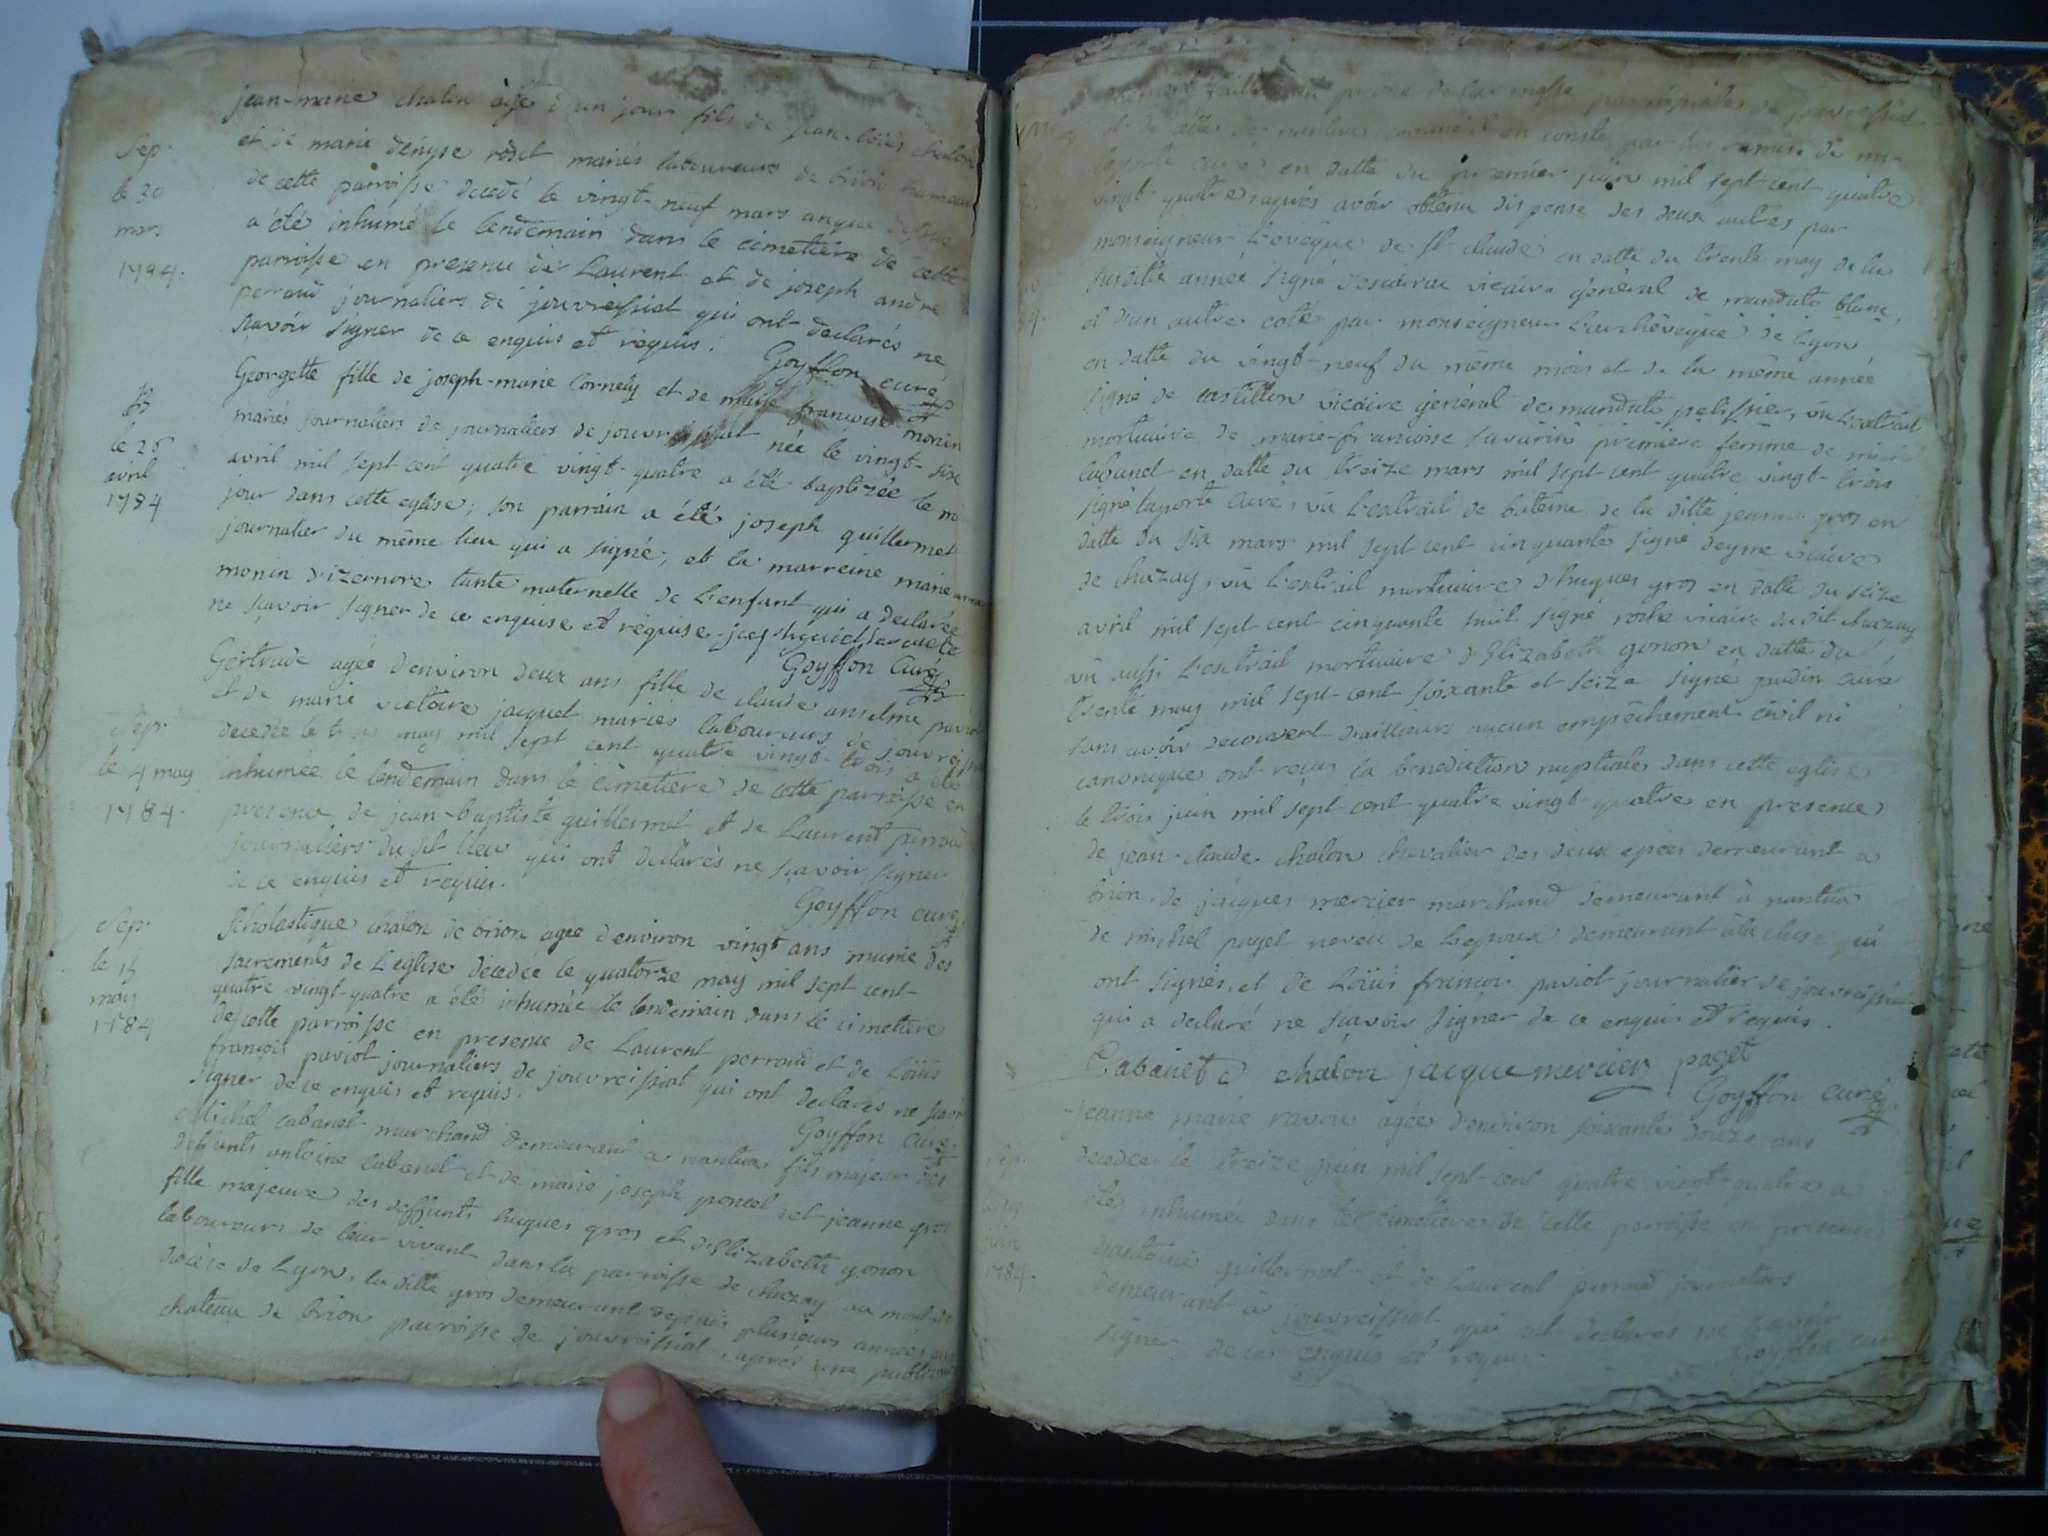 jean-marie chalon âgé d'un jour fils de jean-loüis chalon
Sep.
le 30
mars
1784.
et de marie denyse rosset mariés laboureurs de brion hameau
de cette parroisse decedé le vingt-neuf mars an que dessus
a été inhumé le lendemain dans le cimetiere de cette
parroisse en presence de Laurent et de joseph andré
perraud journaliers de jouvreissiat qui ont declarés ne
scavoir signer de ce enquis et requis.
Goyffon curé
Georgette fille de joseph-marie Cornely et de marie françoise monin
B
le 26
avril
1784
mariés journaliers de journaliers de jouvreissiat née le vingt-six
avril mil sept cent quatre vingt-quatre a été baptizée le mê
jour dans cette eglise; son parrain a été joseph guillermet
journalier du même lieu qui a signé; et la marreine marie anna
monin d'izernore tante maternelle de L'enfant qui a declarée
ne scavoir signer de ce enquise et requise.
Goyffon Curé
Gertrude agée d'environ deux ans fille de claude anselme paviot
Sep.
le 4 may
1784.
et de marie victoire jacquet mariés laboureurs de jouvreissiat
decedée le trois may mil sept cent quatre vingt-trois a été
inhumée le lendemain dans le cimetiere de cette parroisse en
presence de jean-baptiste guillermet et de Laurent perraud
journaliers du dit lieu qui ont declarés ne scavoir signer
de ce enquis et requis.
Goyffon curé
Sep.
le 15
may
1784
Scholastique chalon de brion agée d'environ vingt ans munie des
sacrements de L'eglise decedée le quatorze may mil sept cent
quatre vingt-quatre a été inhumée le lendemain dans le cimetiere
de cette parroisse en presence de Laurent perraud et de Loüis
françois paviot journaliers de jouvreissiat qui ont declarés ne scavoir
signer de ce enquis et requis.
Goyffon Curé
Michel Cabanet marchand demeurant a nantua fils majeur des
deffunts antoine Cabanet et de marie joseph poncet et jeanne gros
fille majeure des deffunts hugues gros et d'Elizabeth gonon
laboureurs de leur vivant dans la parroisse de chazay au mont-d'or
diocèse de Lyon, la ditte gros demeurant depuis plusieurs années au
chateau de brion parroisse de jouvreissiat, après une publication
faitte au prône de la messe parroissiale de jouvreissiat
et de celle de nantua comme il en conste par les remises de mr
laporte curé en datte du premier juin mil sept cent quatre
vingt-quatre, après avoir obtenu dispense des deux autres par
monseigneur L'eveque de St claude en datte du trente may de la
susditte année signé vicaire général de mandato blanc,
et d'un autre coté par monseigneur L'archeveque de Lyon
en datte du vingt-neuf du même mois et de la même année
signé de castillon vicaire général de mandato pelissier, vû L'extrait
mortuaire de marie-francoise savarin premiere femme de michel
Cabanet en datte du treize mars mil sept cent quatre vingt-trois
signé laporte Curé, vû L'extrait de bateme de la ditte jeanne gros en
datte du six mars mil sept cent cinquante signé deyme vicaire
de chazay, vû L'extrait mortuaire d'hugues gros en datte du seize
avril mil sept cent cinquante huit signé roche vicaire du dit chazay
vû aussi L'extrait mortuaire d'Elizabeth gonon en datte du
trente may mil sept-cent soixante et seize signé Curé
sans avoir decouvert d'ailleurs aucun empêchement civil ni
canonique ont reçus la benediction nuptiale dans cette eglise
le trois juin mil sept cent quatre vingt-quatre en presence
de jean-claude chalon chevalier des deux epées demeurant a
brion, de jacques mercier marchand demeurant à nantua
de michel paget neveu de L'epoux demeurant à la cluse qui
ont signés, et de Loüis françois paviot journalier de jouvreissiat
qui a declaré ne scavoir signer de ce enquis et requis.
Cabanet chalon jacque mercier paget
Goyffon curé
jeanne marie ravou agée d'environ soixante douze ans
Sep.
juin
1784.
decedée le treize juin mil sept-cent quatre vingt-quatre a
été inhumée dans le cimetiere de cette parroisse en presence
d'antoine guillermet et de Laurent perraud journaliers
demeurant à jouvreissiat qui ont declarés ne scavoir
signer de ce enquis et requis.
Goyffon curé